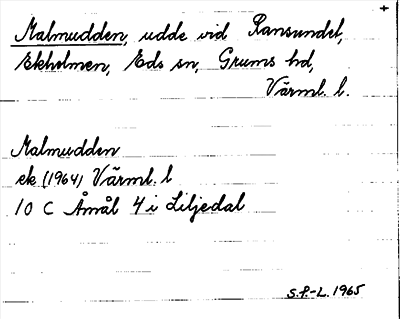 +
Malmudden, udde vid Ransundet,
Ekholmen, Eds sn, Grums hd,
Värml. l.
Malmudden
ek (1964) Värml. l
10 C Åmål 4 i Liljedal
S.P.-L. 1965